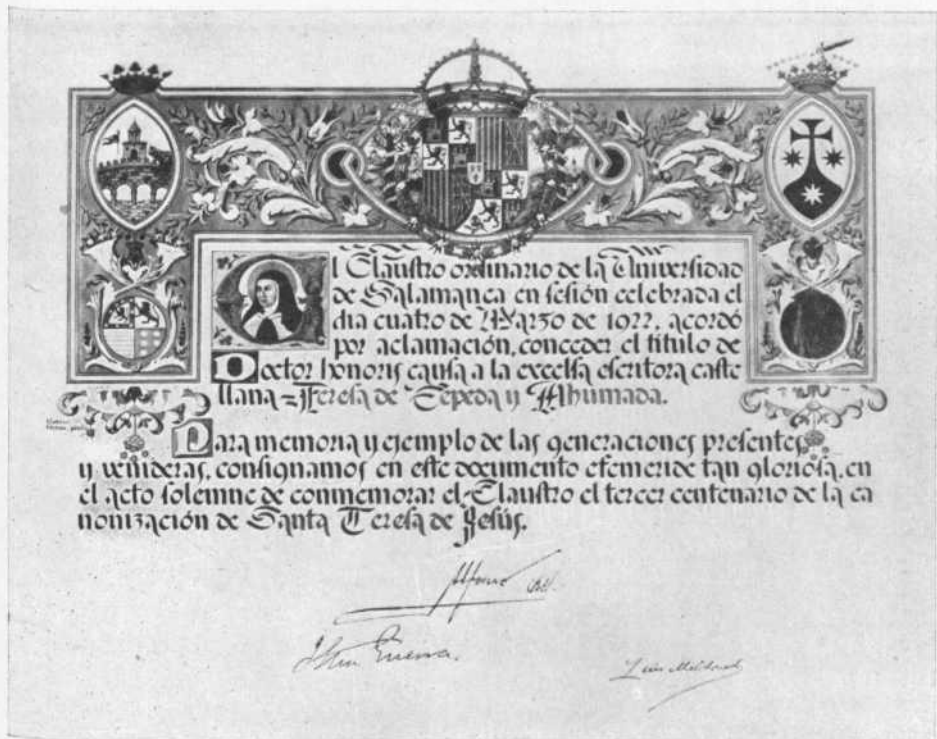 El Claustro ordinario de la Universidad
de Salamanca en sesión celebrada el
dia cuatro de Marzo de 1922, acordó
por aclamación, conceder el título de
Doctor honoris causa a la excelsa escritora caste
llana = Teresa de Cepeda y Ahumada.
Para memoria y ejemplo de las generaciones presentes
y venideras, consignamos en este documento efemeride tan gloriosa, en
el acto solemne de conmemorar el Claustro el tercer centenario de la ca
nonización de Santa Teresa de Jesús.
Alfonso